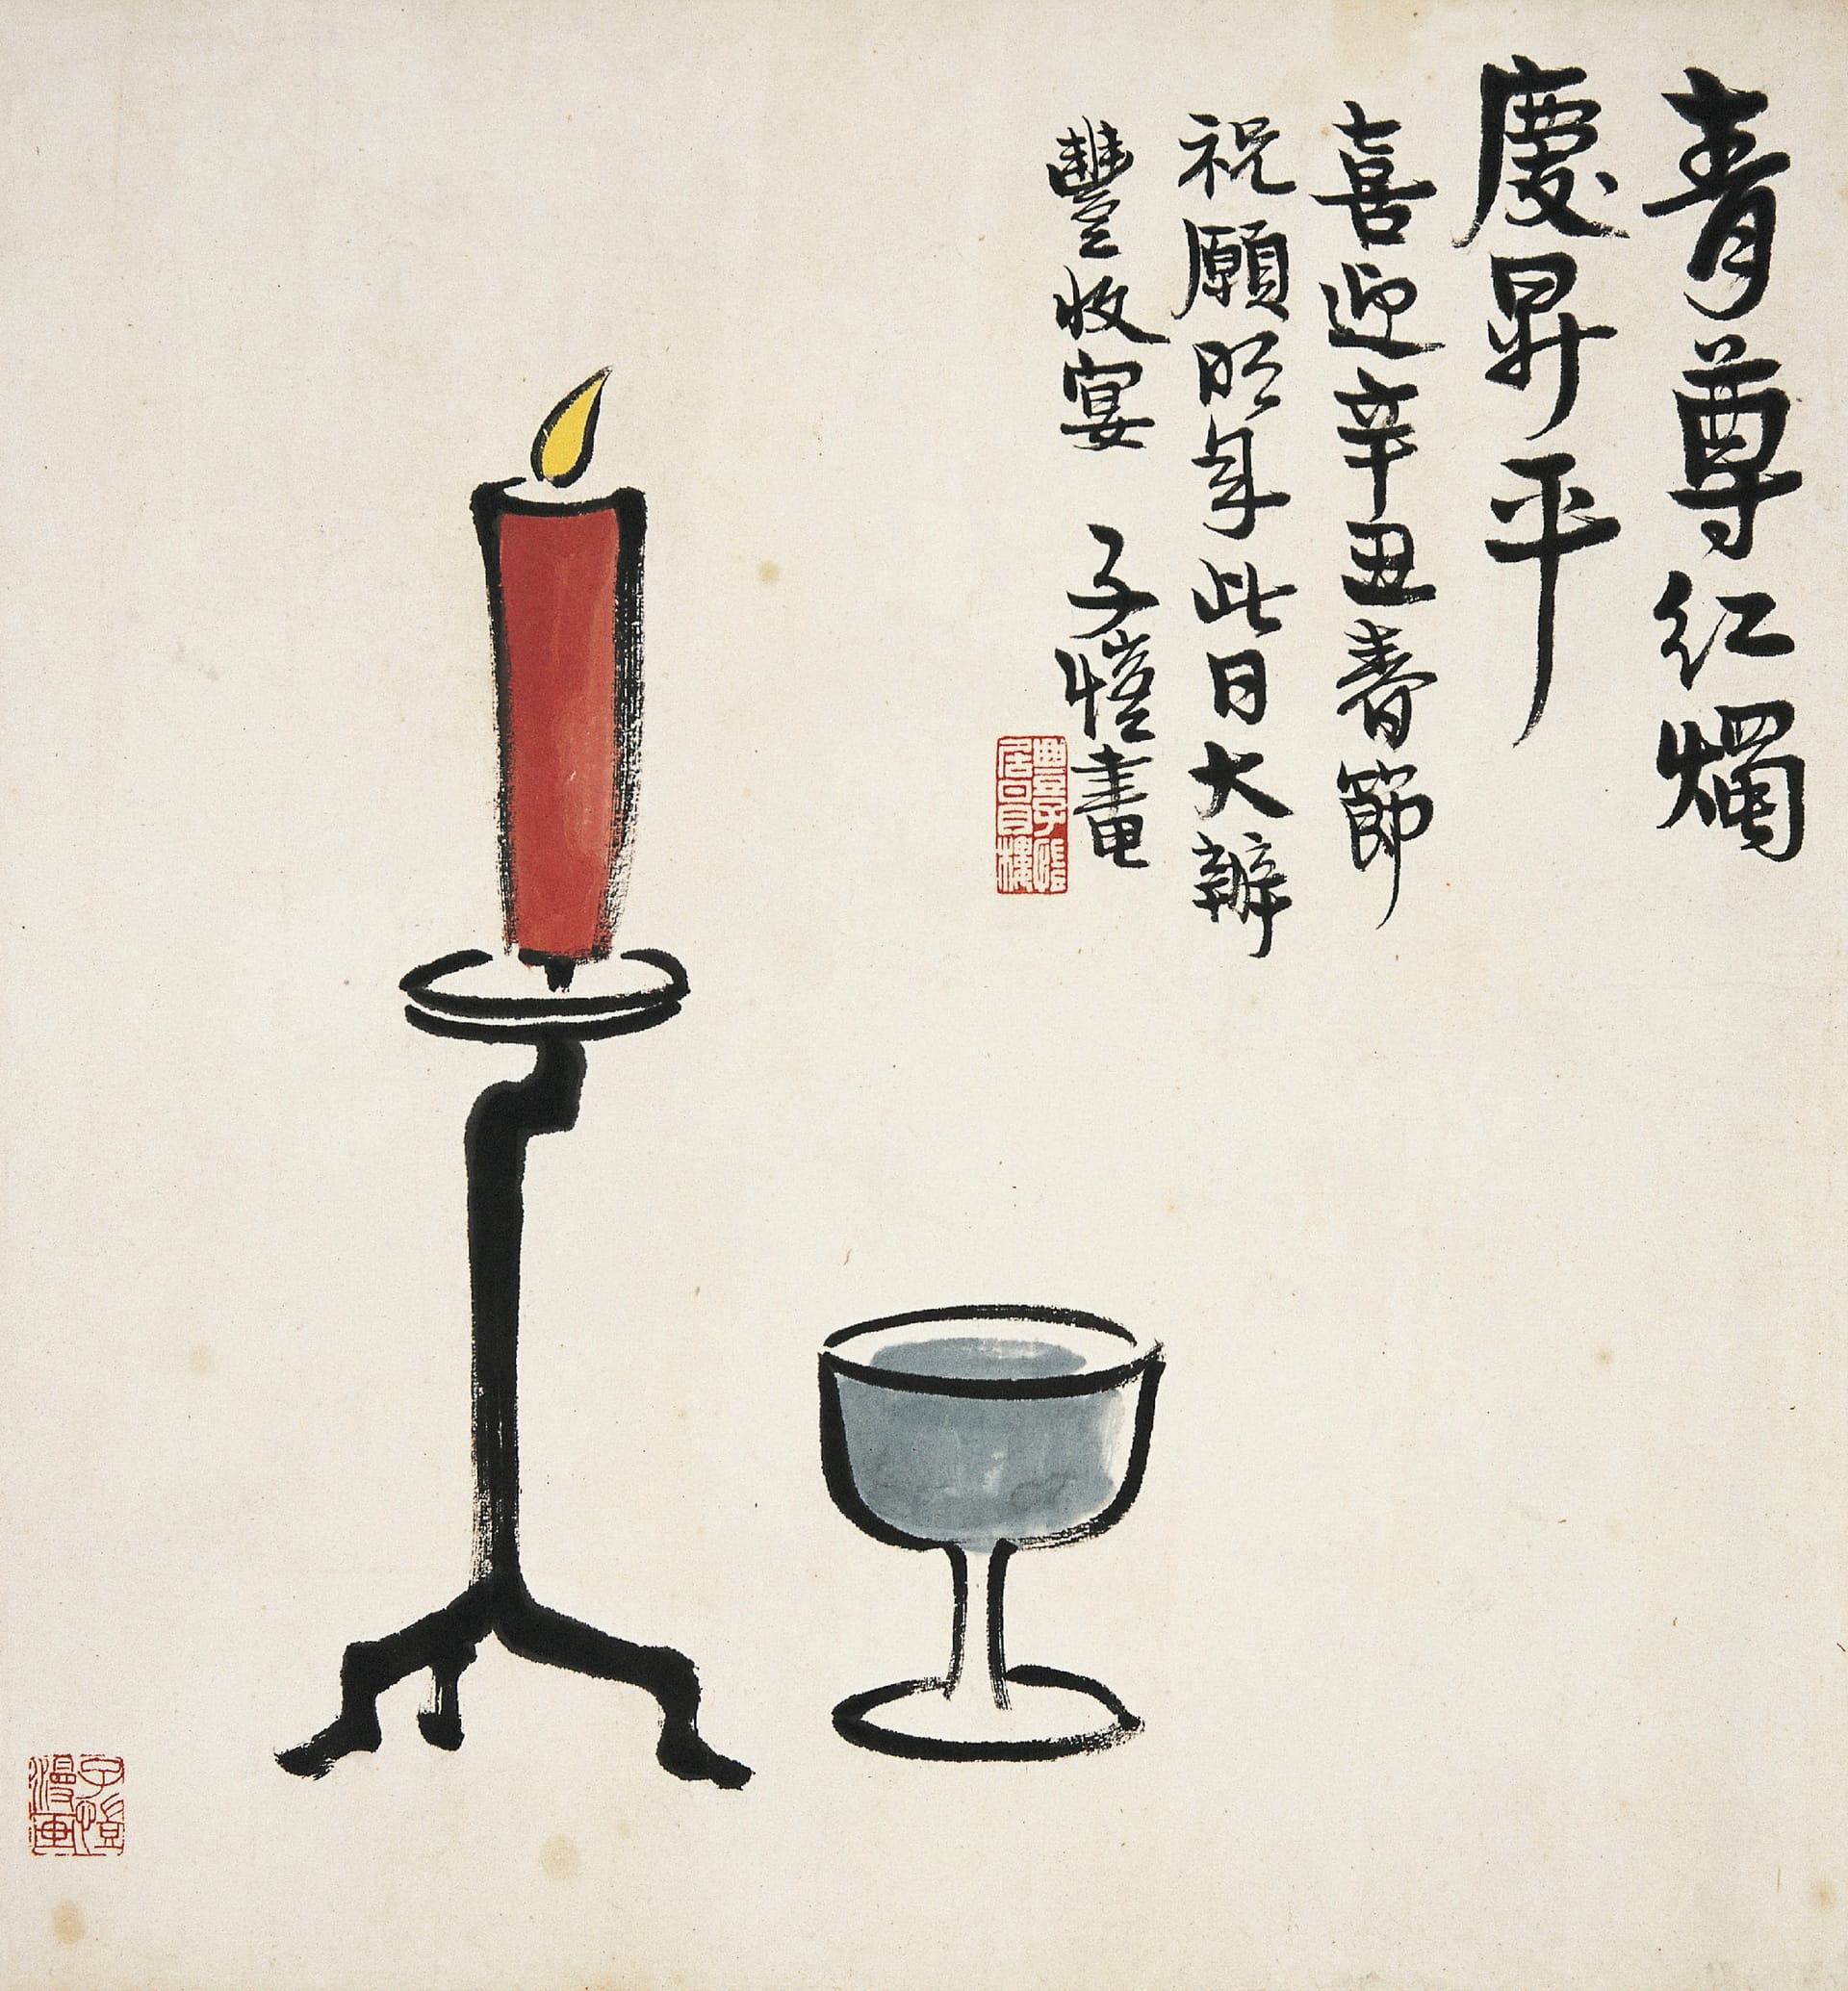 青尊紅燭
慶昇平
喜迎辛丑春節
祝願明年此日大辦
豐收宴 子愷畫
豐子愷
居日月樓
子愷
漫画